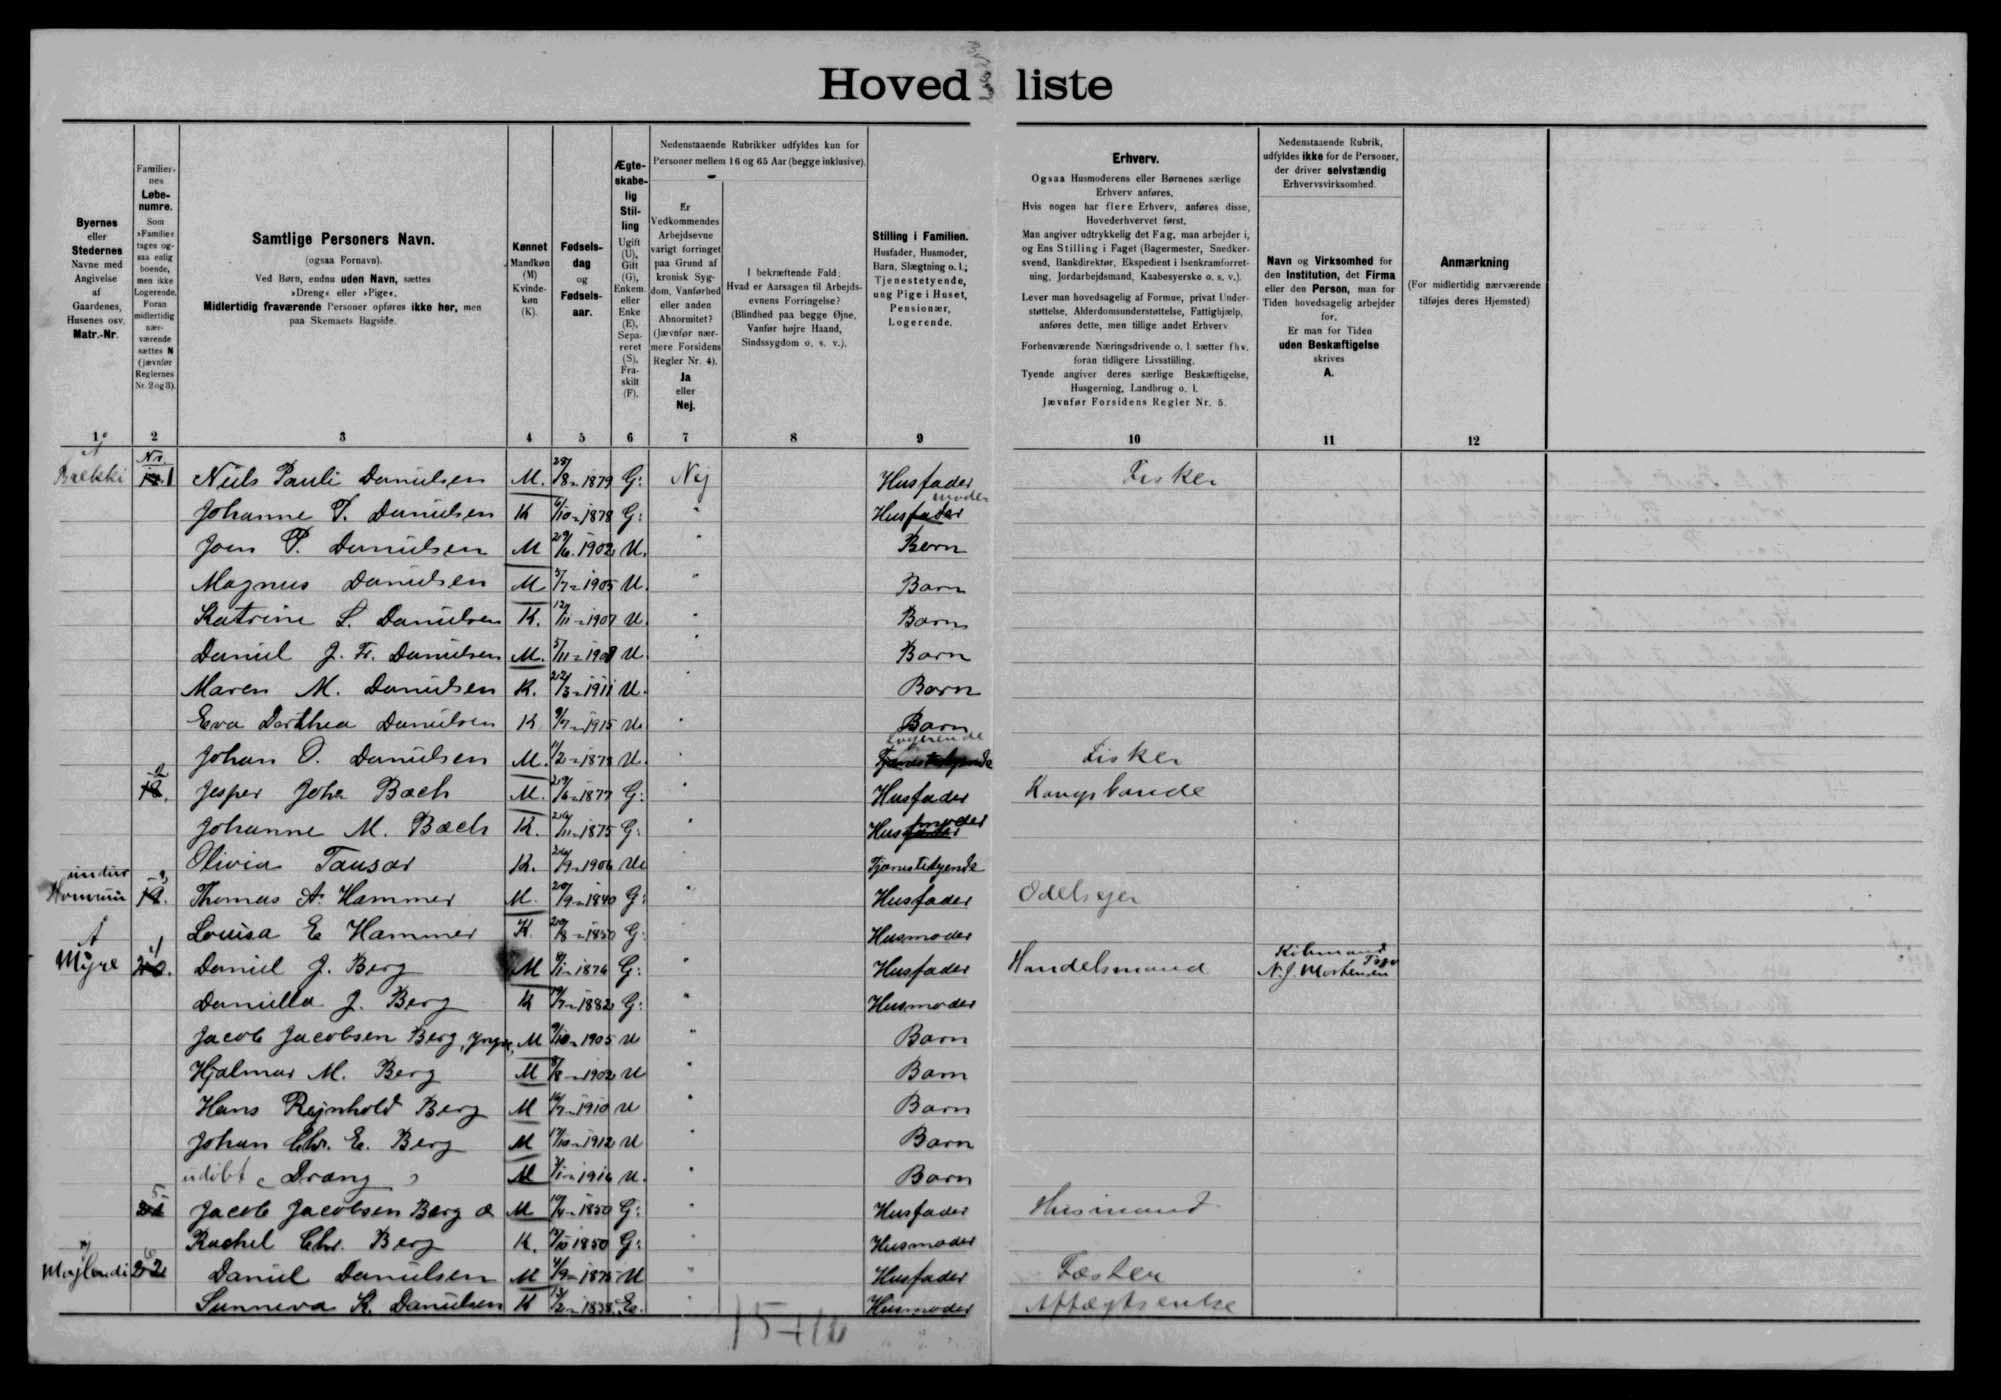 Hoved liste
Byernes
eller
Stedernes
Navne med
Angivelse
af
Gaardenes,
Husenes osv.
Matr.-Nr.
Familier-
nes
Løbe-
numre.
Som
»Familie«
tages og-
saa enlig
boende,
men ikke
Logerende.
Foran
midlertidig
nær-
værende
sættes N
(jævnfør
Reglernes
Nr. 2 og 3).
Samtlige Personers Navn.
(ogsaa Fornavn).
Ved Børn, endnu uden Navn, sættes
»Dreng« eller »Pige«.
Midlertidig fraværende Personer opføres ikke her, men
paa Skemaets Bagside.
Kønnet
Mandkøn
(M)
Kvinde-
køn
(K).
Fødsels-
dag
og
Fødsels-
aar.
Ægte-
skabe-
lig
Stil-
ling
Ugift
(U),
Gift
(G),
Enkem.
eller
Enke
(E),
Sepa-
reret
(S),
Fra-
skilt
(F).
Nedenstaaende Rubrikker udfyldes kun for
Personer mellem 16 og 65 Aar (begge inklusive).
Er
Vedkommendes
Arbejdsevne
varigt forringet
paa Grund af
kronisk Syg-
dom, Vanførhed
eller anden
Abnormitet?
(Jævnfør nær-
mere Forsidens
Regler Nr. 4).
Ja
eller
Nej.
I bekræftende Fald:
Hvad er Aarsagen til Arbejds-
evnens Forringelse?
(Blindhed paa begge Øjne,
Vanfør højre Haand,
Sindssygdom o. s. v.).
Stilling i Familien.
Husfader, Husmoder,
Barn, Slægtning o. l.;
Tjenestetyende,
ung Pige i Huset,
Pensionær,
Logerende.
Erhverv.
Ogsaa Husmoderens eller Børnenes særlige
Erhverv anføres.
Hvis nogen har flere Erhverv, anføres disse,
Hovederhvervet først.
Man angiver udtrykkelig det Fag, man arbejder i,
og Ens Stilling i Faget (Bagermester, Snedker-
svend, Bankdirektør, Ekspedient i Isenkramforret-
ning, Jordarbejdsmand, Kaabesyerske o. s. v.).
Lever man hovedsagelig af Formue, privat Under-
støttelse, Alderdomsunderstøttelse, Fattighjælp,
anføres dette, men tillige andet Erhverv
Forhenværende Næringsdrivende o. l. sætter fhv.
foran tidligere Livsstilling.
Tyende angiver deres særlige Beskæftigelse,
Husgerning, Landbrug o. l.
Jævnfør Forsidens Regler Nr. 5.
Nedenstaaende Rubrik,
udfyldes ikke for de Personer,
der driver selvstændig
Erhvervsvirksomhed.
Navn og Virksomhed for
den Institution, det Firma
eller den Person, man for
Tiden hovedsagelig arbejder
for.
Er man for Tiden
uden Beskæftigelse
skrives
A.
Anmærkning
(For midlertidig nærværende
tilføjes deres Hjemsted)
1 2 3 4 5 6 7 8 9 10 11 12
Nr.
Brekki 1 Niels Pauli Danielsen M. 28/8 1879 G. Nej Husfader Fisker
Johanne P. Danielsen K 6/10 1878 G. " Husmoder
Joen P. Danielsen M 29/6 1902 U. " Barn
Magnus Danielsen M 5/7 1905 U. " Barn
Katrine S. Danielsen K. 12/11 1907 U. " Barn
Daniel J. Fr. Danielsen M. 5/11 1908 U. " Barn
Maren M. Danielsen K. 22/3 1911 U. " Barn
Eva Dorthea Danielsen K 9/7 1915 U. " Barn
Johan O. Danielsen M. 11/2 1878 U. " Logerende Fisker
2 Jesper Joh. Bach M. 29/6 1877 G. " Husfader Kongsbonde
Johanne M. Bach K. 26/11 1875 G. " Husmoder
Olivia Tausar K. 26/9 1906 U. Tjenestetyende
undir
3 Thomas A. Hammer M. 20/9 1840 G. " Husfader Odelsejer
Louisa E Hammer K. 20/8 1850 G. Husmoder
Á Mýre 4 Daniel J. Berg M 9/1 1876 G. " Husfader Handelsmand Købmand
N. J. Mortensen
Daniella J. Berg K 1882 G. " Husmoder
Jacob Jacobsen Berg, yngre, M 9/10 1905 U " Barn
Hjalmar M. Berg M 9/8 1902 U " Barn
Hans Rejnhold Berg M 16/7 1910 U " Barn
Johan Chr. E. Berg M 17/10 1912 U " Barn
udøbt (Dreng) M 1916 U. " Barn
5 Jacob Jacobsen Berg æ M 1850 G. " Husfader Husmand
Rachel Chr. Berg K. 1850 G. Husmoder
6 Daniel Danielsen M 4/9 1875 U " Husfader Fæster
Sunneva K. Danielsen K 1838 E. " Husmoder Aftægtsenke
15+10